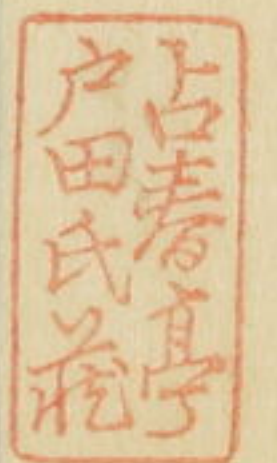 占春亭
戸田氏蔵